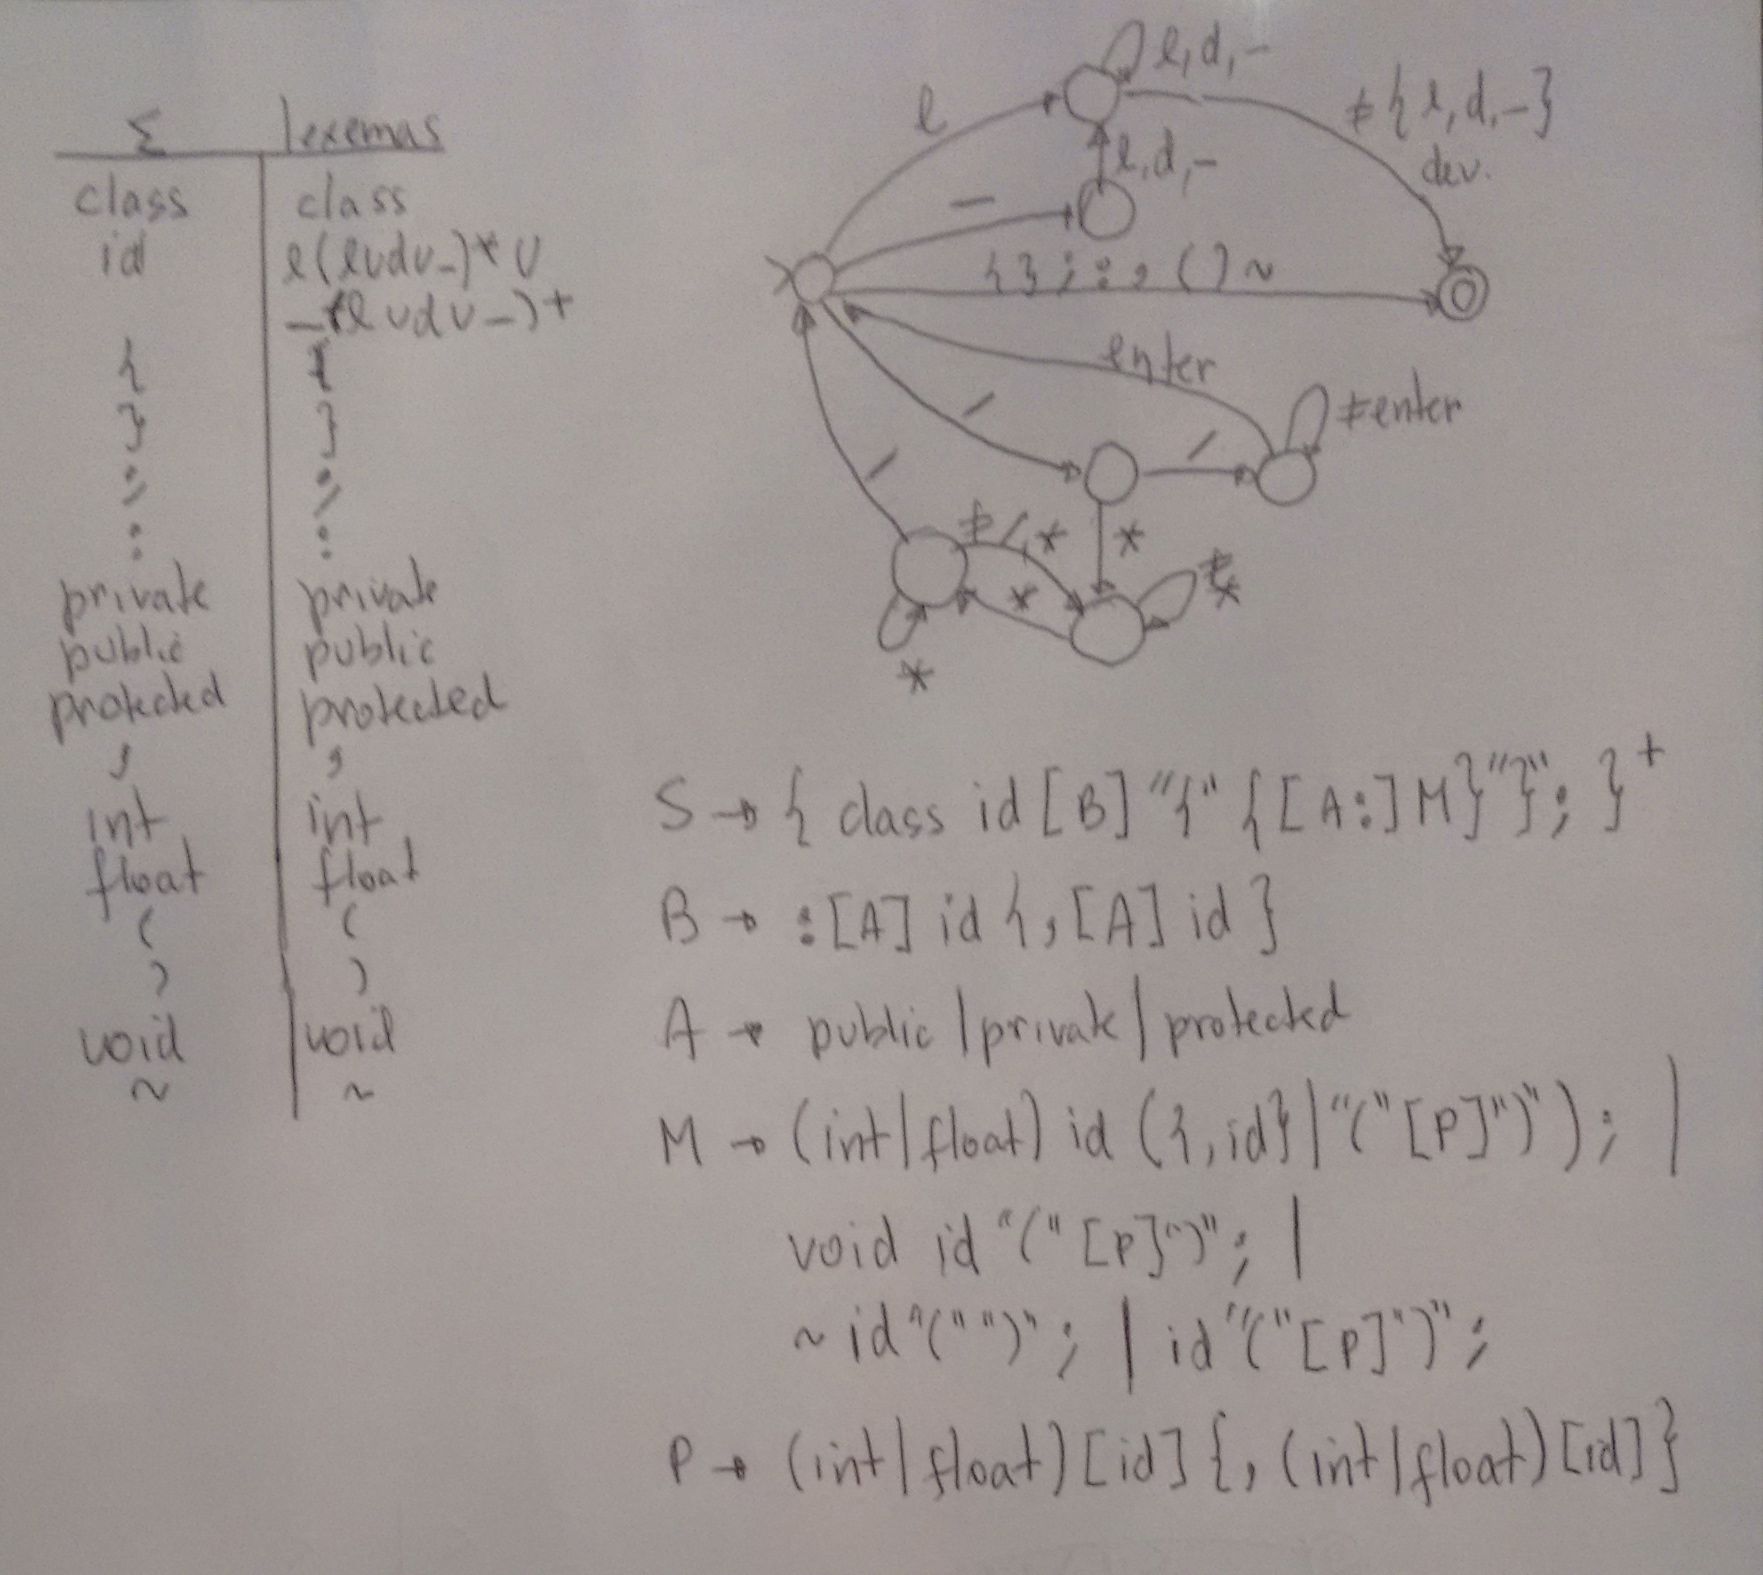 Σ lexemas
class class
id l(l∪d∪_)* ∪
_(l∪d∪_)+
{ {
} }
; ;
: :
private private
public public
protected protected
, ,
int int
float float
( (
) )
void void
~ ~
l,d,_
l
≠{l,d,_}
dev.
l,d,_
_
{ } ; : , ( ) ~
enter
/
≠enter
/
/
≠/,*
*
≠*
*
*
S → { class id [B] "{" {[A:] M} "}" ; }+
B → :[A] id {,[A] id }
A → public | private | protected
M → (int|float) id ({,id}|"("[P]")"); |
void id "(" [P] ")"; |
~id"("")"; | id"("[P]")";
P → (int|float)[id]{,(int|float)[id]}